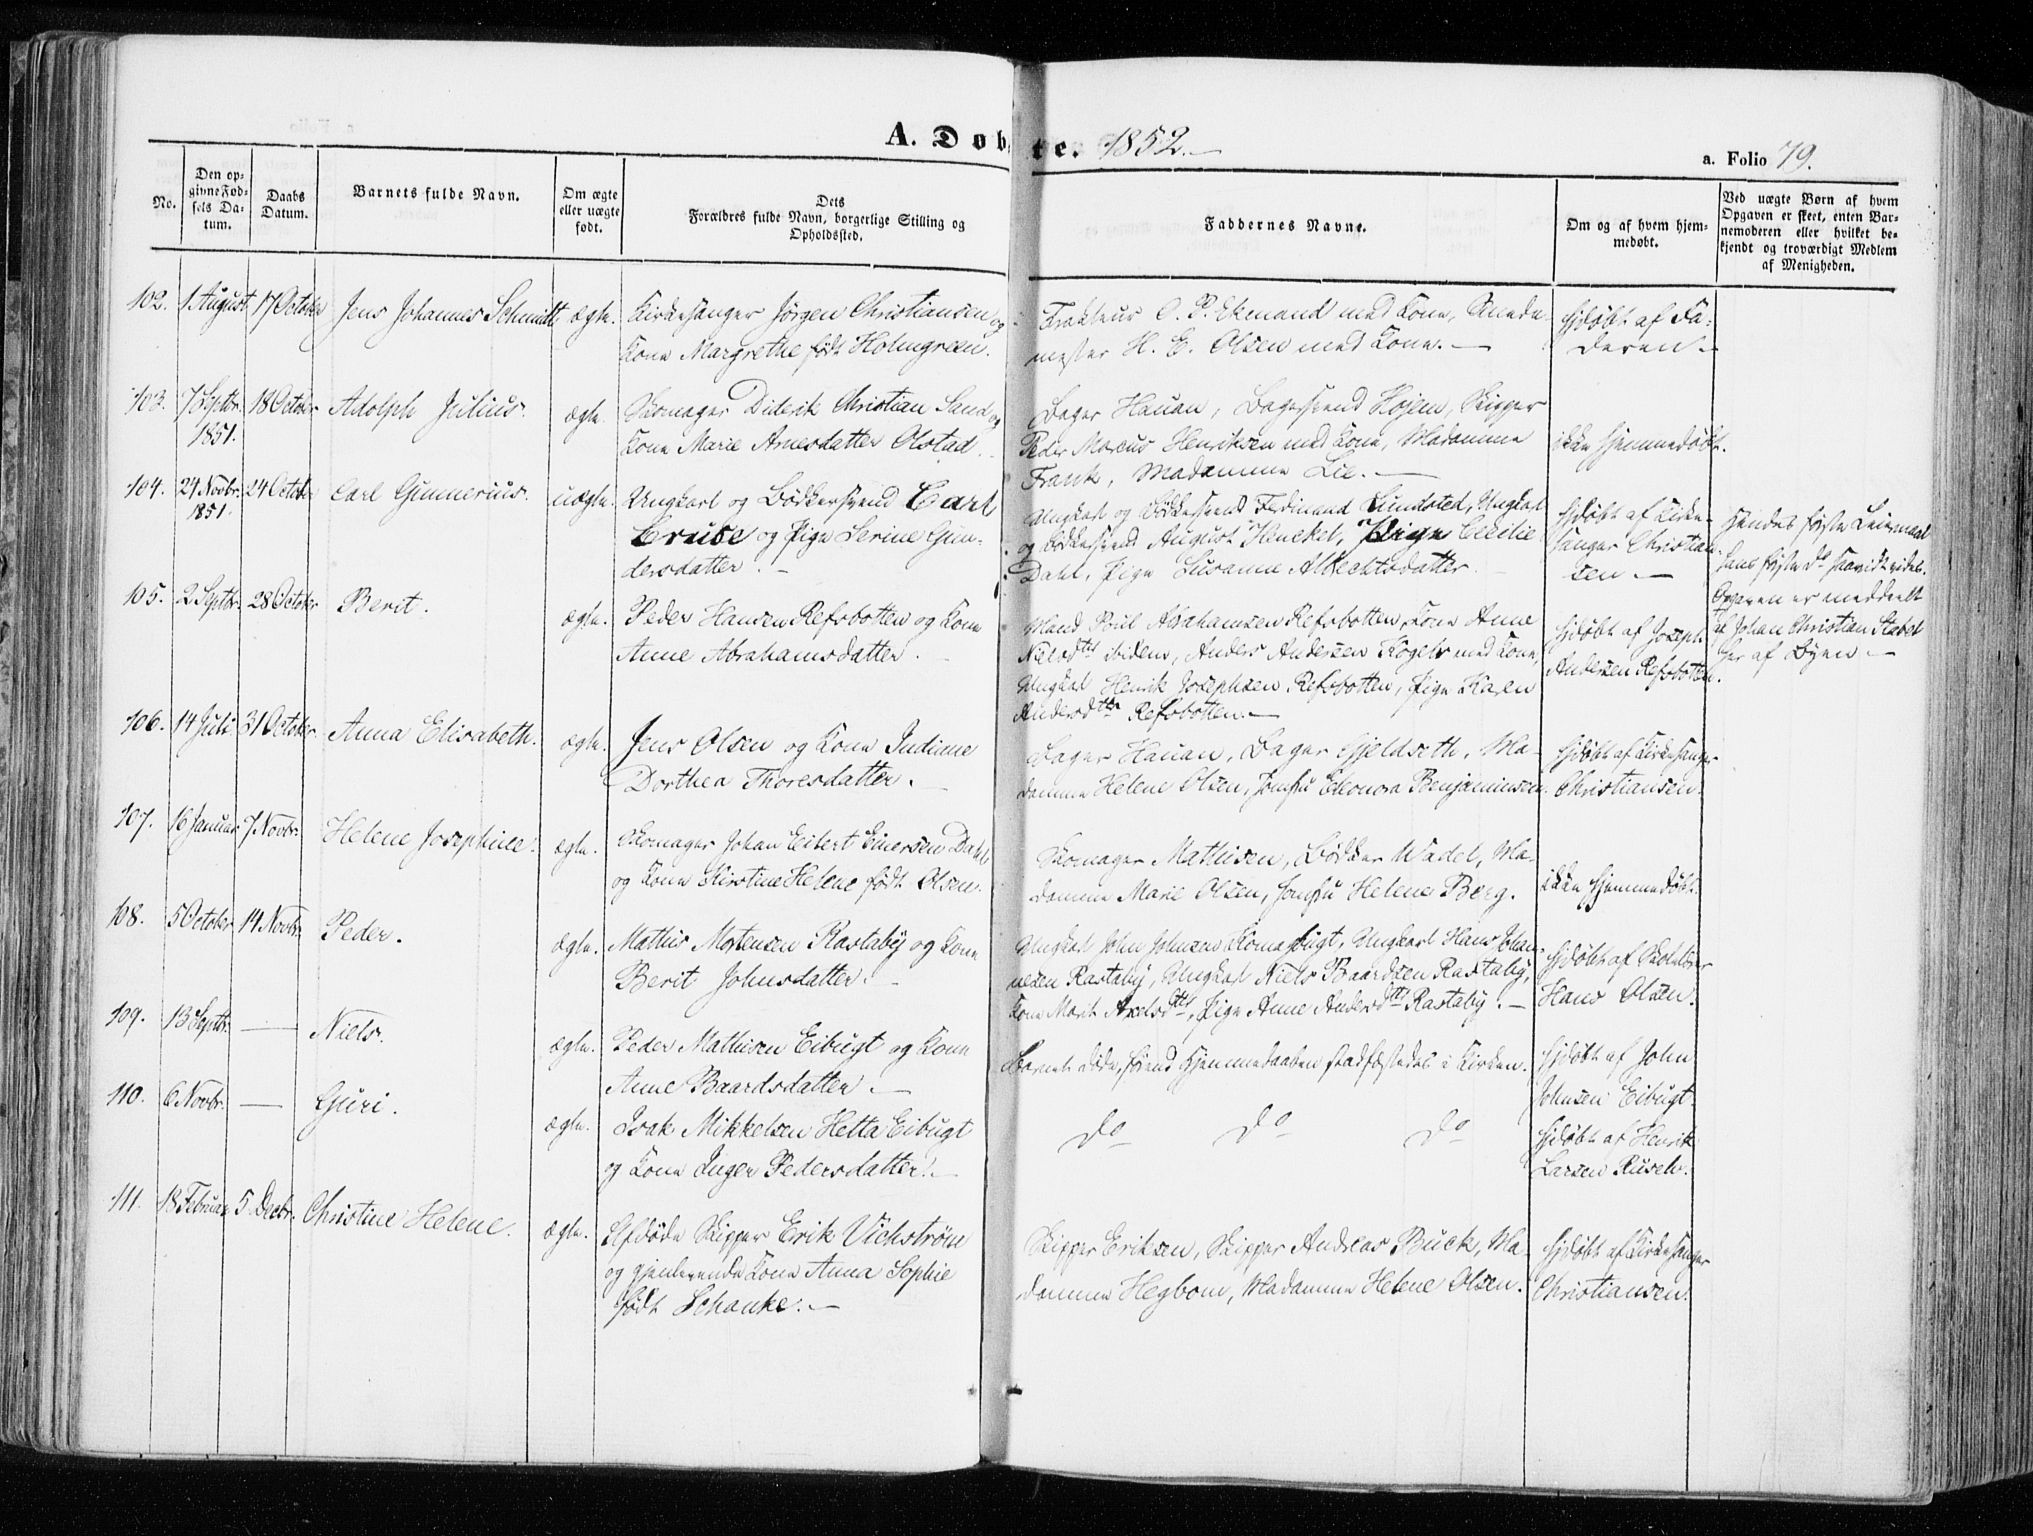 A. Døbte. 1852.
a. Folio 79.
No.
Den op-
givne Fød-
sels Da-
tum.
Daabs
Datum.
Barnets fulde Navn.
Om ægte
eller uægte
født.
Dets
Forældres fulde Navn, borgerlige Stilling og
Opholdssted.
Faddernes Navne.
Om og af hvem hjem-
medøbt.
Ved uægte Børn af hvem
Opgaven er skeet, enten Bar-
nemoderen eller hvilket be-
kjendt og troværdigt Medlem
af Menigheden.
102. 1 August 17 October Jens Johannes Schmidt ægte. Kirkesanger Jørgen Christiansen og
Kone Margrethe født Holmgreen.
Trakteur O. P. Ekmand med Kone, Snedker-
mester H. E. Olsen med Kone.
hjdøbt af Fa-
deren.
103. 7 Septbr. 1851. 18 October Adolph Julius. ægte. Skomager Diderik Christian Sand og
Kone Marie Arnesdatter Olstad.
Bager Hauan, Bagersvend Hojem, Skipper
Peder Marcus Henriksen med Kone, Madamme
Frank, Madamme Lie.
ikke hjemmedøbt.
104. 24 Novbr. 1851. 24 October Carl Gunnerius. uægte. Ungkarl og Bødkersvend Carl
Cruse og Pige Serine Gun-
dersdatter.
Ungkarl og Bødkersvend Ferdinand Lundsted, Ungkarl
og Bødkersvend August Henckel, Pige Cecilie
Dahl, Pige Susanne Albrechtsdatter.
hjdøbt af Kirke-
sanger Christian-
sen.
Hendes første Leiermaal
hans første do saavidt vides.
Opgaven er meddeelt
af Johan Christian Stabel
her af Byen.
105. 2 Septbr. 28 October Berit. ægte. Peder Hansen Refsbotten og Kone
Anne Abrahamsdatter.
Mand Poul Abrahamsen Refsbotten, Kone Anne
Nielsdtr ibidem, Anders Andersen Kogelv med Kone,
Ungkarl Henrik Josephsen Refsbotten, Pige Karen
Andersdtr Refsbotten.
hjdøbt af Joseph
Andersen Refsbotten.
106. 14 Juli 31 October Anna Elisabeth. ægte. Jens Olsen og Kone Indiane
Dorthea Thoresdatter.
Bager Hauan, Bager Gjeldseth, Ma-
damme Helene Olsen, Jomfru Eleonora Benjaminsen.
hjdøbt af Kirkesanger
Christiansen.
107. 16 Januar 7 Novbr. Helene Josephine. ægte. Skomager Johan Eilert Einersen Dahl
og Kone Kirstine Helene født Olsen.
Skomager Mathisen, Bødker Wadel, Ma-
damme Marie Olsen, Jomfru Helene Berg.
ikke hjemmedøbt.
108. 5 October 14 Novbr. Peder. ægte. Mathis Mortensen Rastaby og Kone
Berit Johnsdatter.
Ungkarl John Johnsen Komagbugt, Ungkarl Hans Johan-
nesen Rastaby, Ungkarl Niels Baardsen Rastaby,
Kone Marit Axelsdtr, Pige Anne Andersdtr Rastaby.
hjdøbt af Skolelærer
Hans Olsen.
109. 13 Septbr. — Niels. ægte. Peder Mathisen Eibugt og Kone
Anne Baardsdatter.
Barnet døde, førend Hjemmedaaben stadfæstedes i Kirken.
hjdøbt af John
Johnsen Eibugt.
110. 6 Novbr. — Guri. ægte. Isak Mikkelsen Hetta Eibugt
og Kone Inger Pedersdatter.
do do do
hjdøbt af Henrik
Larsen Ruselv.
111. 18 Februar 5 Decbr. Christine Helene. ægte. Afdøde Skipper Erik Vichstrøm
og gjenlevende Kone Anna Sophie
født Schanke.
Skipper Eriksen, Skipper Andreas Buck, Ma-
damme Hegbom, Madamme Helene Olsen.
hjdøbt af Kirkesanger
Christiansen.